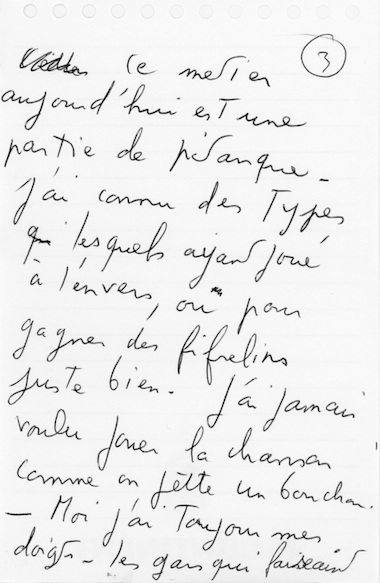 3
ce metier
aujourd'hui est une
partie de pétanque -
j'ai connu des Types
lesquels ayant joué
à l'envers, ou pour
gagner des fifrelins
juste bien. j'ai jamais
voulu jouer la chanson
comme on jette un bouchon.
- Moi j'ai Toujours mes
doigts - les gars qui faisaient